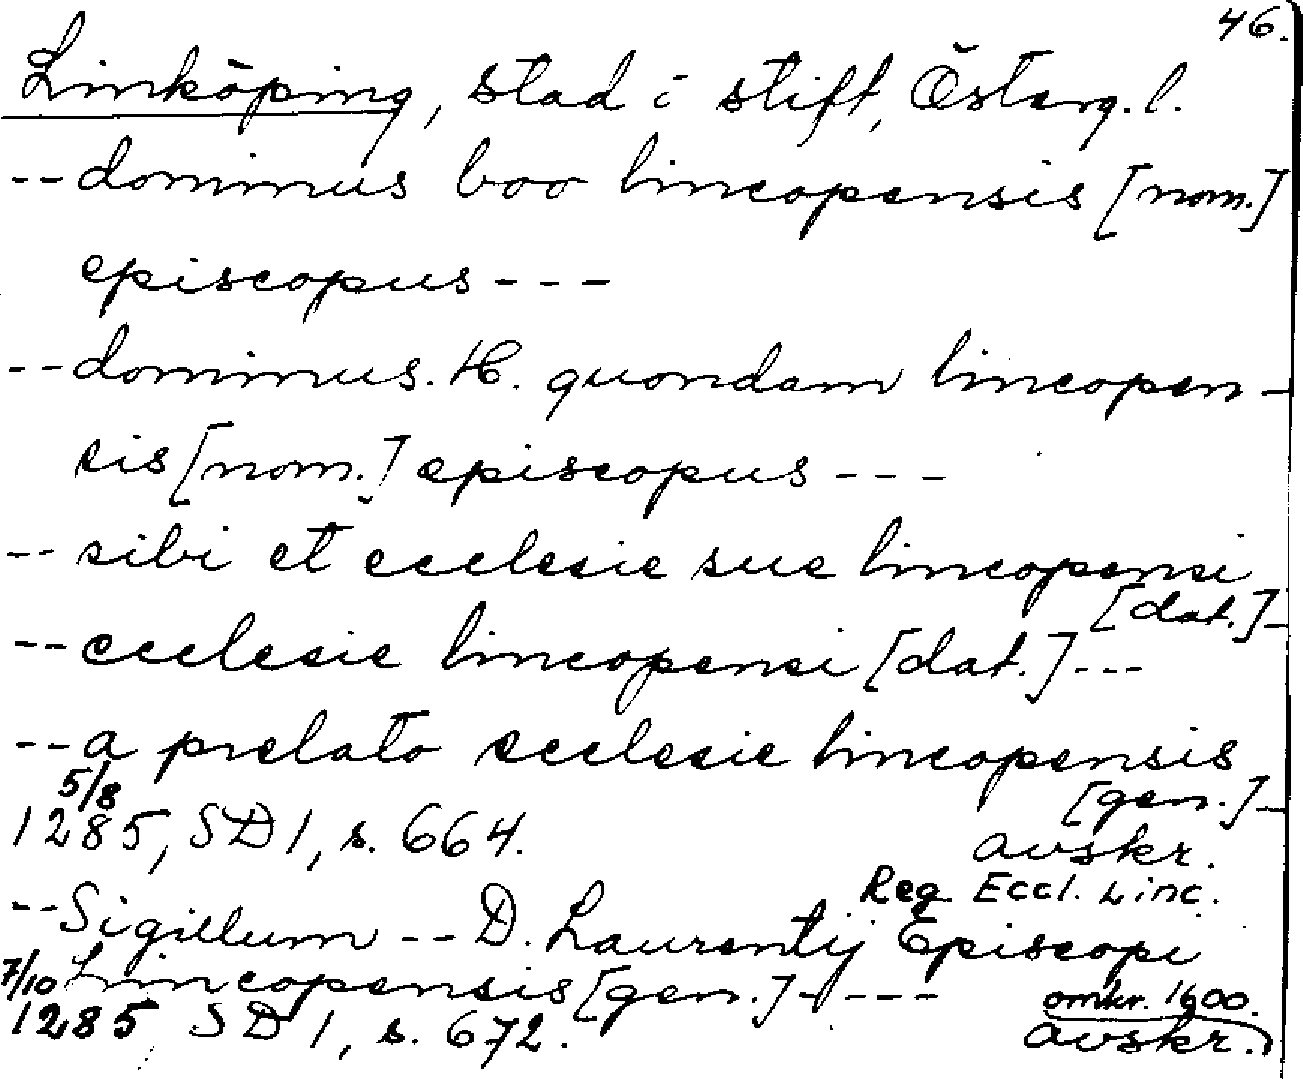 46.
Linköping, stad i stift, Österg. l.
-- dominus boo lincopensis [nom.]
episcopus ---
-- dominus. H. quondam lincopen-
sis [nom.] episcopus ---
-- sibi et ecclesie sue lincopensi
[dat.] -
-- ecclesie lincopensi [dat.] ---
-- a prelato ecclesie lincopensis
[gen.] -
5/8
1285, SD 1, s. 664. avskr.
Reg Eccl. Linc.
-- Sigillum -- D. Laurentij Episcopi
Lincopensis [gen.] ----
7/10 omkr. 1600.
1285 SD 1, s. 672. avskr.